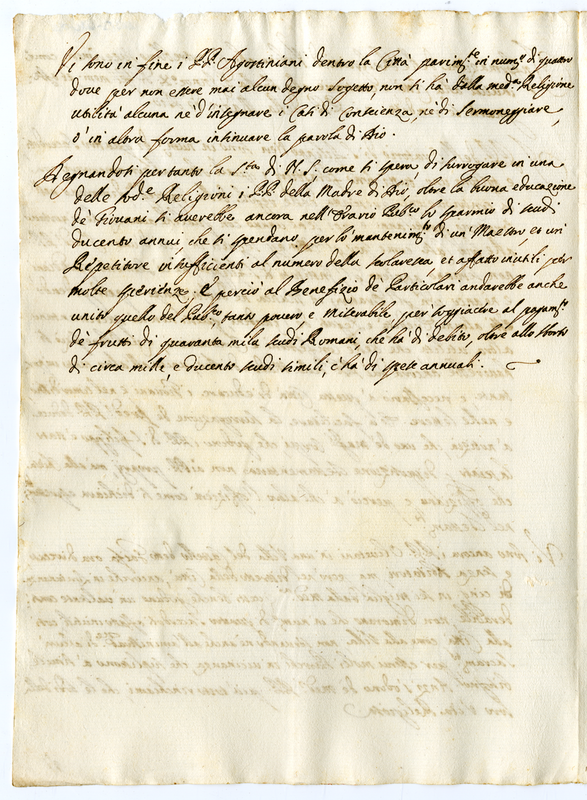 Vi sono in fine i PP. Agostiniani dentro la Città parim.te in num.o di quattro
dove per non essere mai alcun degno sogetto, non si hà dalla med.a Religione
utilità alcuna nè d'insegnare i Casi di Conscienza, nè di Sermoneggiare,
ò in altra forma insinuare la parola di Dio.
Degnandosi per tanto la S.tà di N. S.; come si spera di surrogare in una
delle sod.e Religioni i PP. della Madre di Dio, oltre la buona educazione
de' Giovani si averebbe ancora nell'Erario Pub.co lo sparmio di scudi
ducento annui, che si spendano per lo mantenim.to di un' Maestro, et un'
Repetitore insufficienti al numero della scolaresca, et affatto inutili per
molte sperienze, e perciò al Benefizio de Particolari andarebbe anche
unito quello del Pub.co, tanto povero e miserabile, per soggiacere al pagam.to
de' frutti di quaranta mila scudi Romani, che hà di debito, oltre allo sborso
di circa mille, e ducento scudi simili, c'hà di spese annuali.